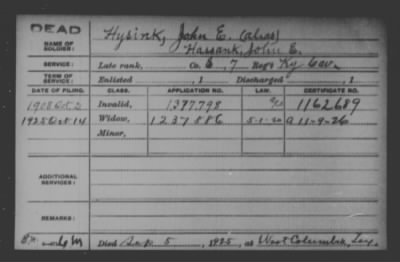 DEAD
Hysink, John E. (alias)
NAME OF SOLDIER: Hassank, John E.
SERVICE: Late rank, Co. E, 7 Reg't Ky Cav.
TERM OF SERVICE: Enlisted , 1 Discharged , 1
DATE OF FILING. CLASS. APPLICATION NO. LAW. CERTIFICATE NO.
1908 Oct 2 Invalid, 1377798 1162689
1925 Oct 14 Widow, 1237086 5-1-20 a 11-9-26
Minor,
ADDITIONAL SERVICES:
REMARKS:
Died Sep. 5, 1925, at West Columbia, Tex.